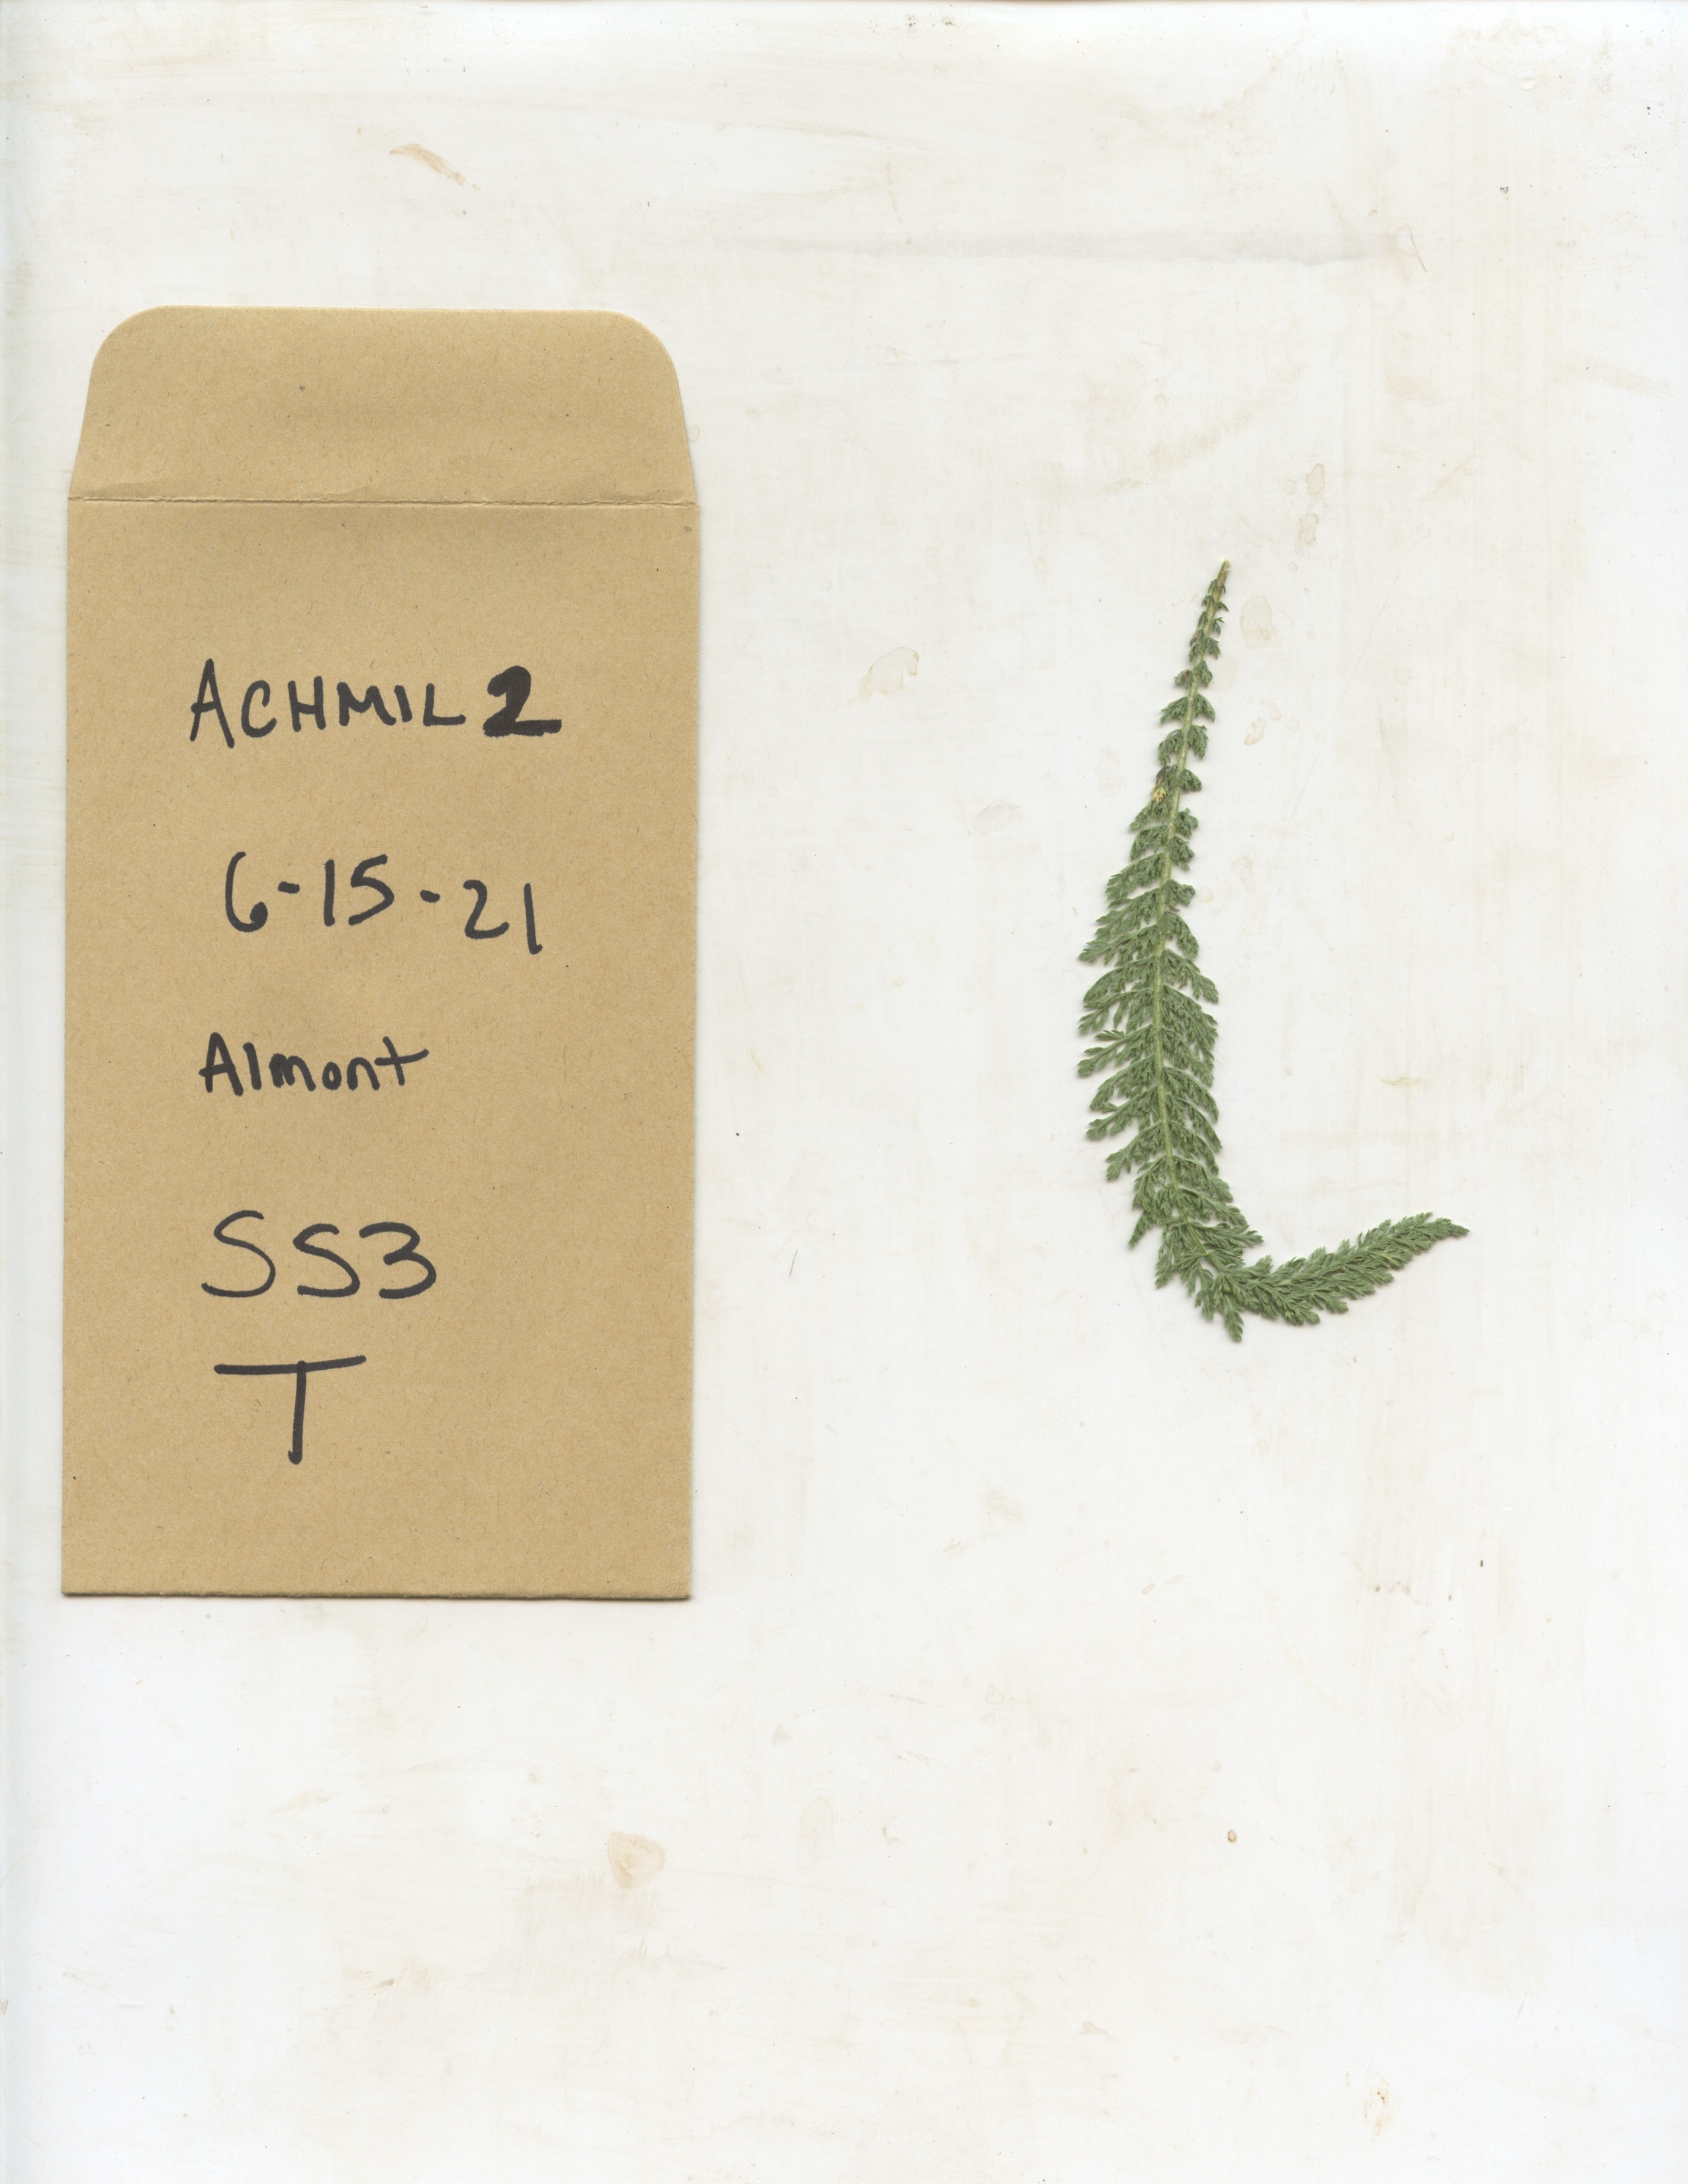 ACHMIL 2
6-15-21
Almont
SS3
T